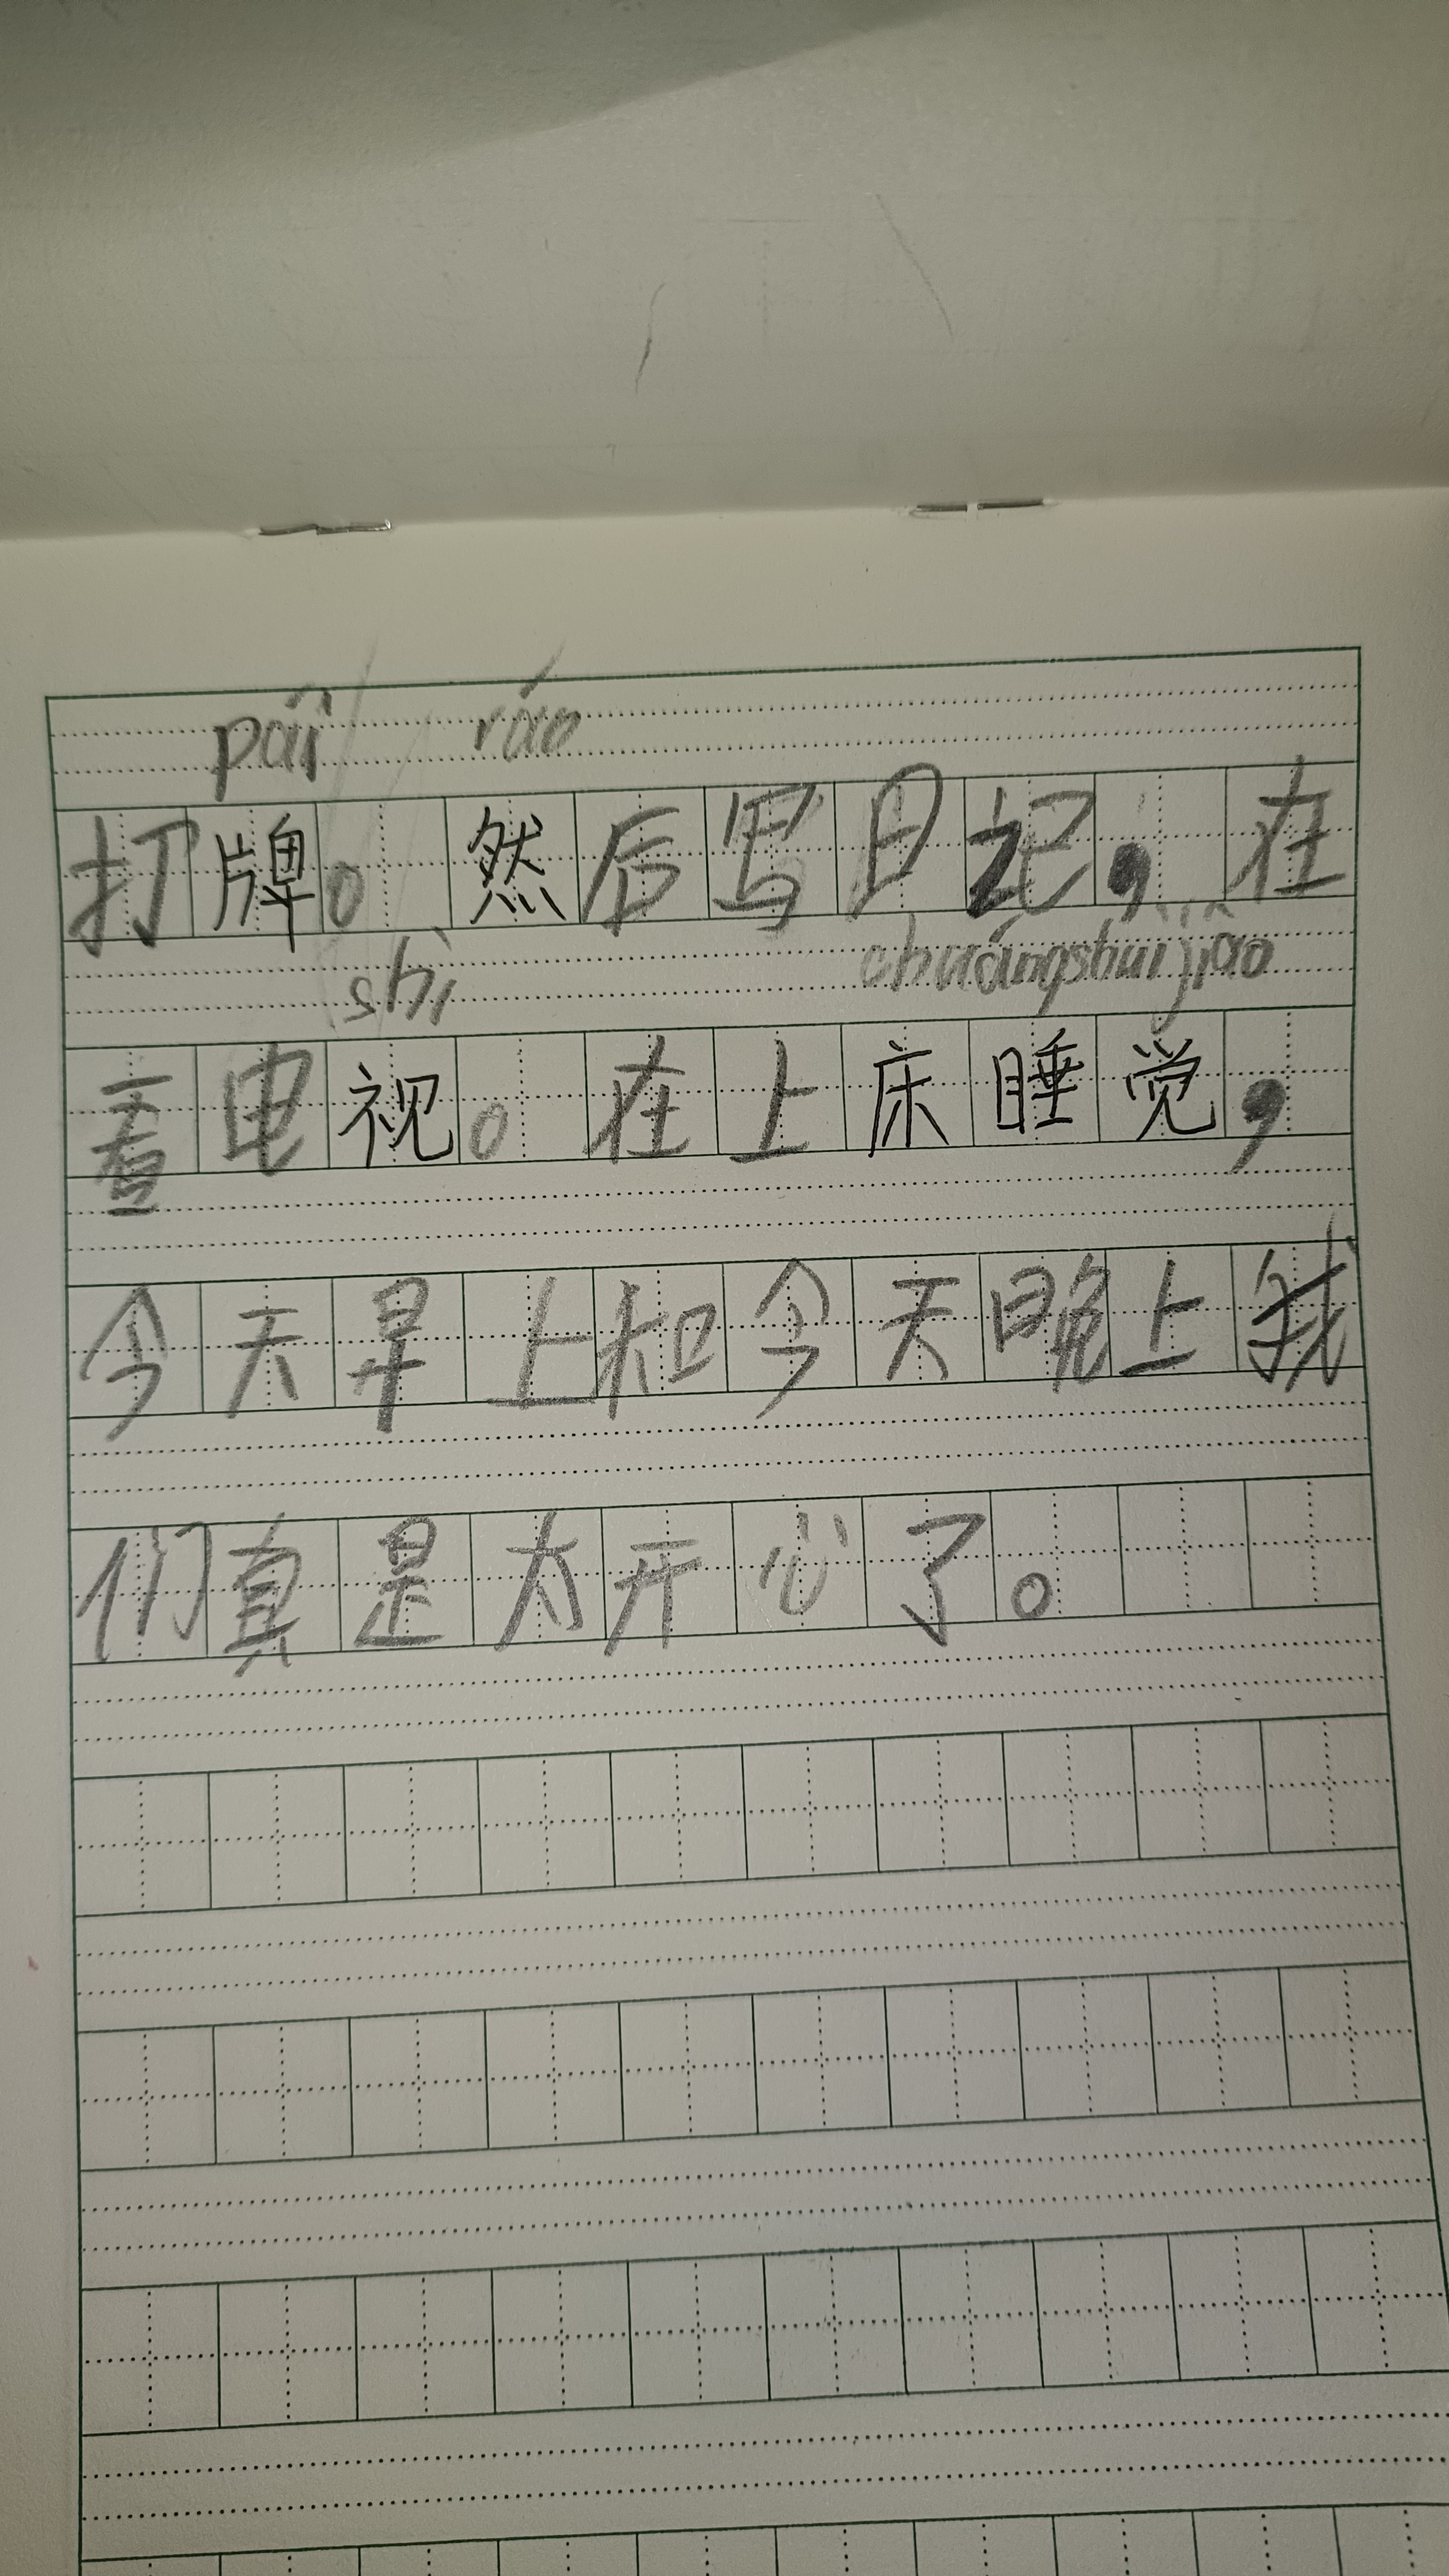 pái rán
打牌。然后写日记，在
shì chuángshuìjiào
看电视。在上床睡觉，
今天早上和今天晚上我
们真是太开心了。